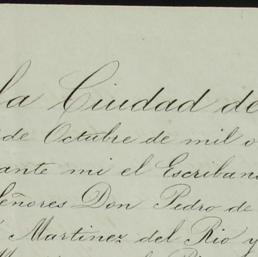 la Ciudad de
de Octubre de mil o
ante mi el Escriban
Señores Don Pedro de
Martinez del Rio y